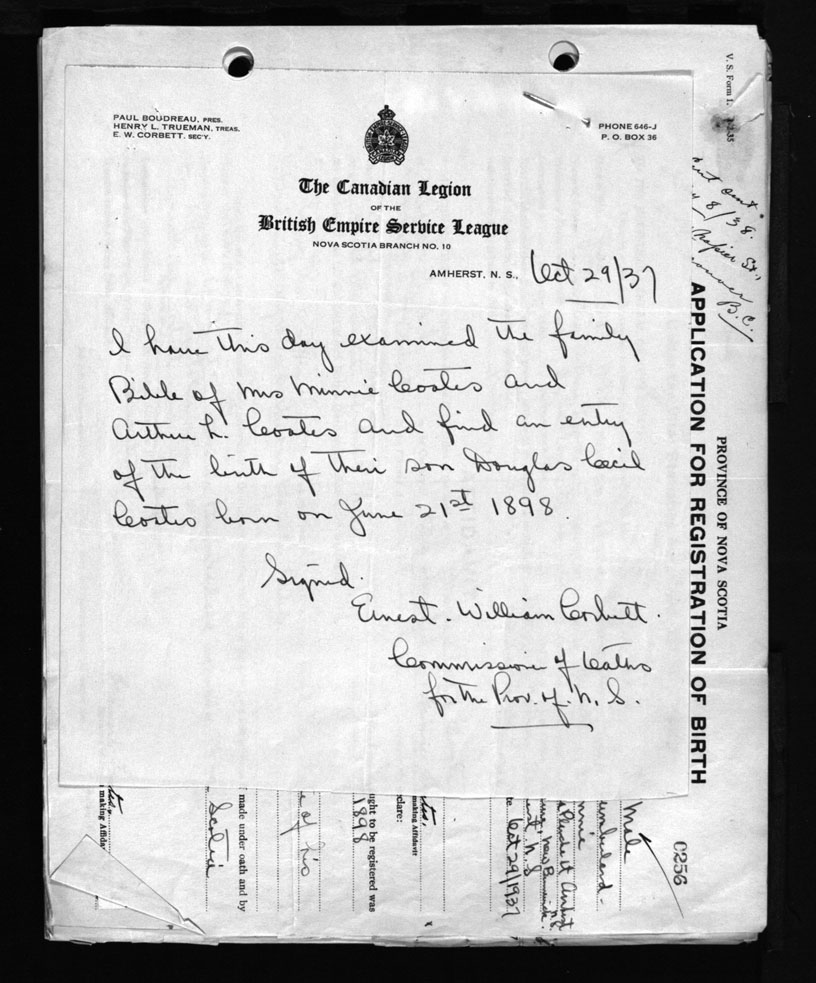 PAUL BOUDREAU, PRES.
HENRY L. TRUEMAN, TREAS.
E. W. CORBETT, SEC'Y.
PHONE 646-J
P. O. BOX 36
The Canadian Legion
OF THE
British Empire Service League
NOVA SCOTIA BRANCH NO. 10
AMHERST, N. S., Oct 29/37
I have this day examined the family
Bible of Mrs Minnie Coates and
Arthur L. Coates and find an entry
of the birth of their son Douglas Cecil
Coates born on June 21st 1898.
Signed.
Ernest. William Corbett.
Commissioner of Oaths
for the Prov. of. N. S.
V. S. Form 1.
8/38.
Napier St.,
B.C.
PROVINCE OF NOVA SCOTIA
APPLICATION FOR REGISTRATION OF BIRTH
0256
Male
Amherst
New Brunswick.
N. S
Oct 29/1937
making Affidavit
clare:
ught to be registered was
1898
e of his
made under oath and by
Scotia
making Affida